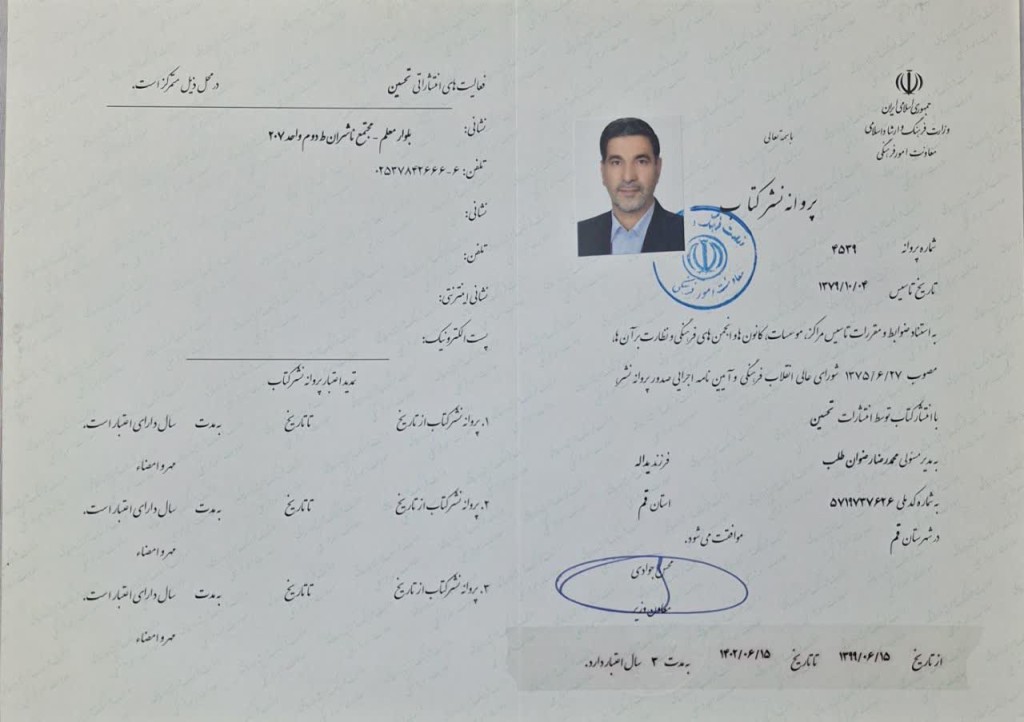 جمهوری اسلامی ایران
وزارت فرهنگ و ارشاد اسلامی
معاونت امور فرهنگی
باسمه تعالی
پروانه نشر کتاب
شماره پروانه ۴۵۳۹
تاریخ تاسیس ۱۳۷۹/۱۰/۰۴
به استناد ضوابط و مقررات تاسیس مراکز، موسسات، کانون ها و انجمن های فرهنگی و نظارت بر آن ها،
مصوب ۱۳۷۵/۶/۲۷ شورای عالی انقلاب فرهنگی و آیین نامه اجرایی صدور پروانه نشر؛
با انتشار کتاب توسط انتشارات تحسین
به مدیر مسئولی محمدرضا رضوان طلب فرزند یداله
به شماره کد ملی ۵۷۱۹۷۳۷۶۲۶ استان قم
در شهرستان قم موافقت می شود.
محسن جوادی
معاون وزیر
از تاریخ ۱۳۹۹/۰۶/۱۵ تا تاریخ ۱۴۰۲/۰۶/۱۵ به مدت ۳ سال اعتبار دارد.
معاونت امور فرهنگی
فعالیت های انتشاراتی تحسین در محل ذیل متمرکز است.
نشانی: بلوار معلم - مجتمع ناشران ط دوم واحد ۲۰۷
تلفن: ۶-۰۲۵۳۷۸۴۲۶۶۶
نشانی:
تلفن:
نشانی اینترنتی:
پست الکترونیک:
تمدید اعتبار پروانه نشر کتاب
۱. پروانه نشر کتاب از تاریخ تا تاریخ به مدت سال دارای اعتبار است.
مهر و امضاء
۲. پروانه نشر کتاب از تاریخ تا تاریخ به مدت سال دارای اعتبار است.
مهر و امضاء
۳. پروانه نشر کتاب از تاریخ تا تاریخ به مدت سال دارای اعتبار است.
مهر و امضاء